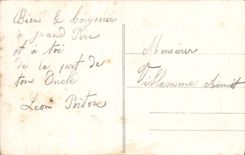 Bien le bonjour
à grand Père
et à toi
de la part de
ton Oncle
Léon
Monsieur
Villamme